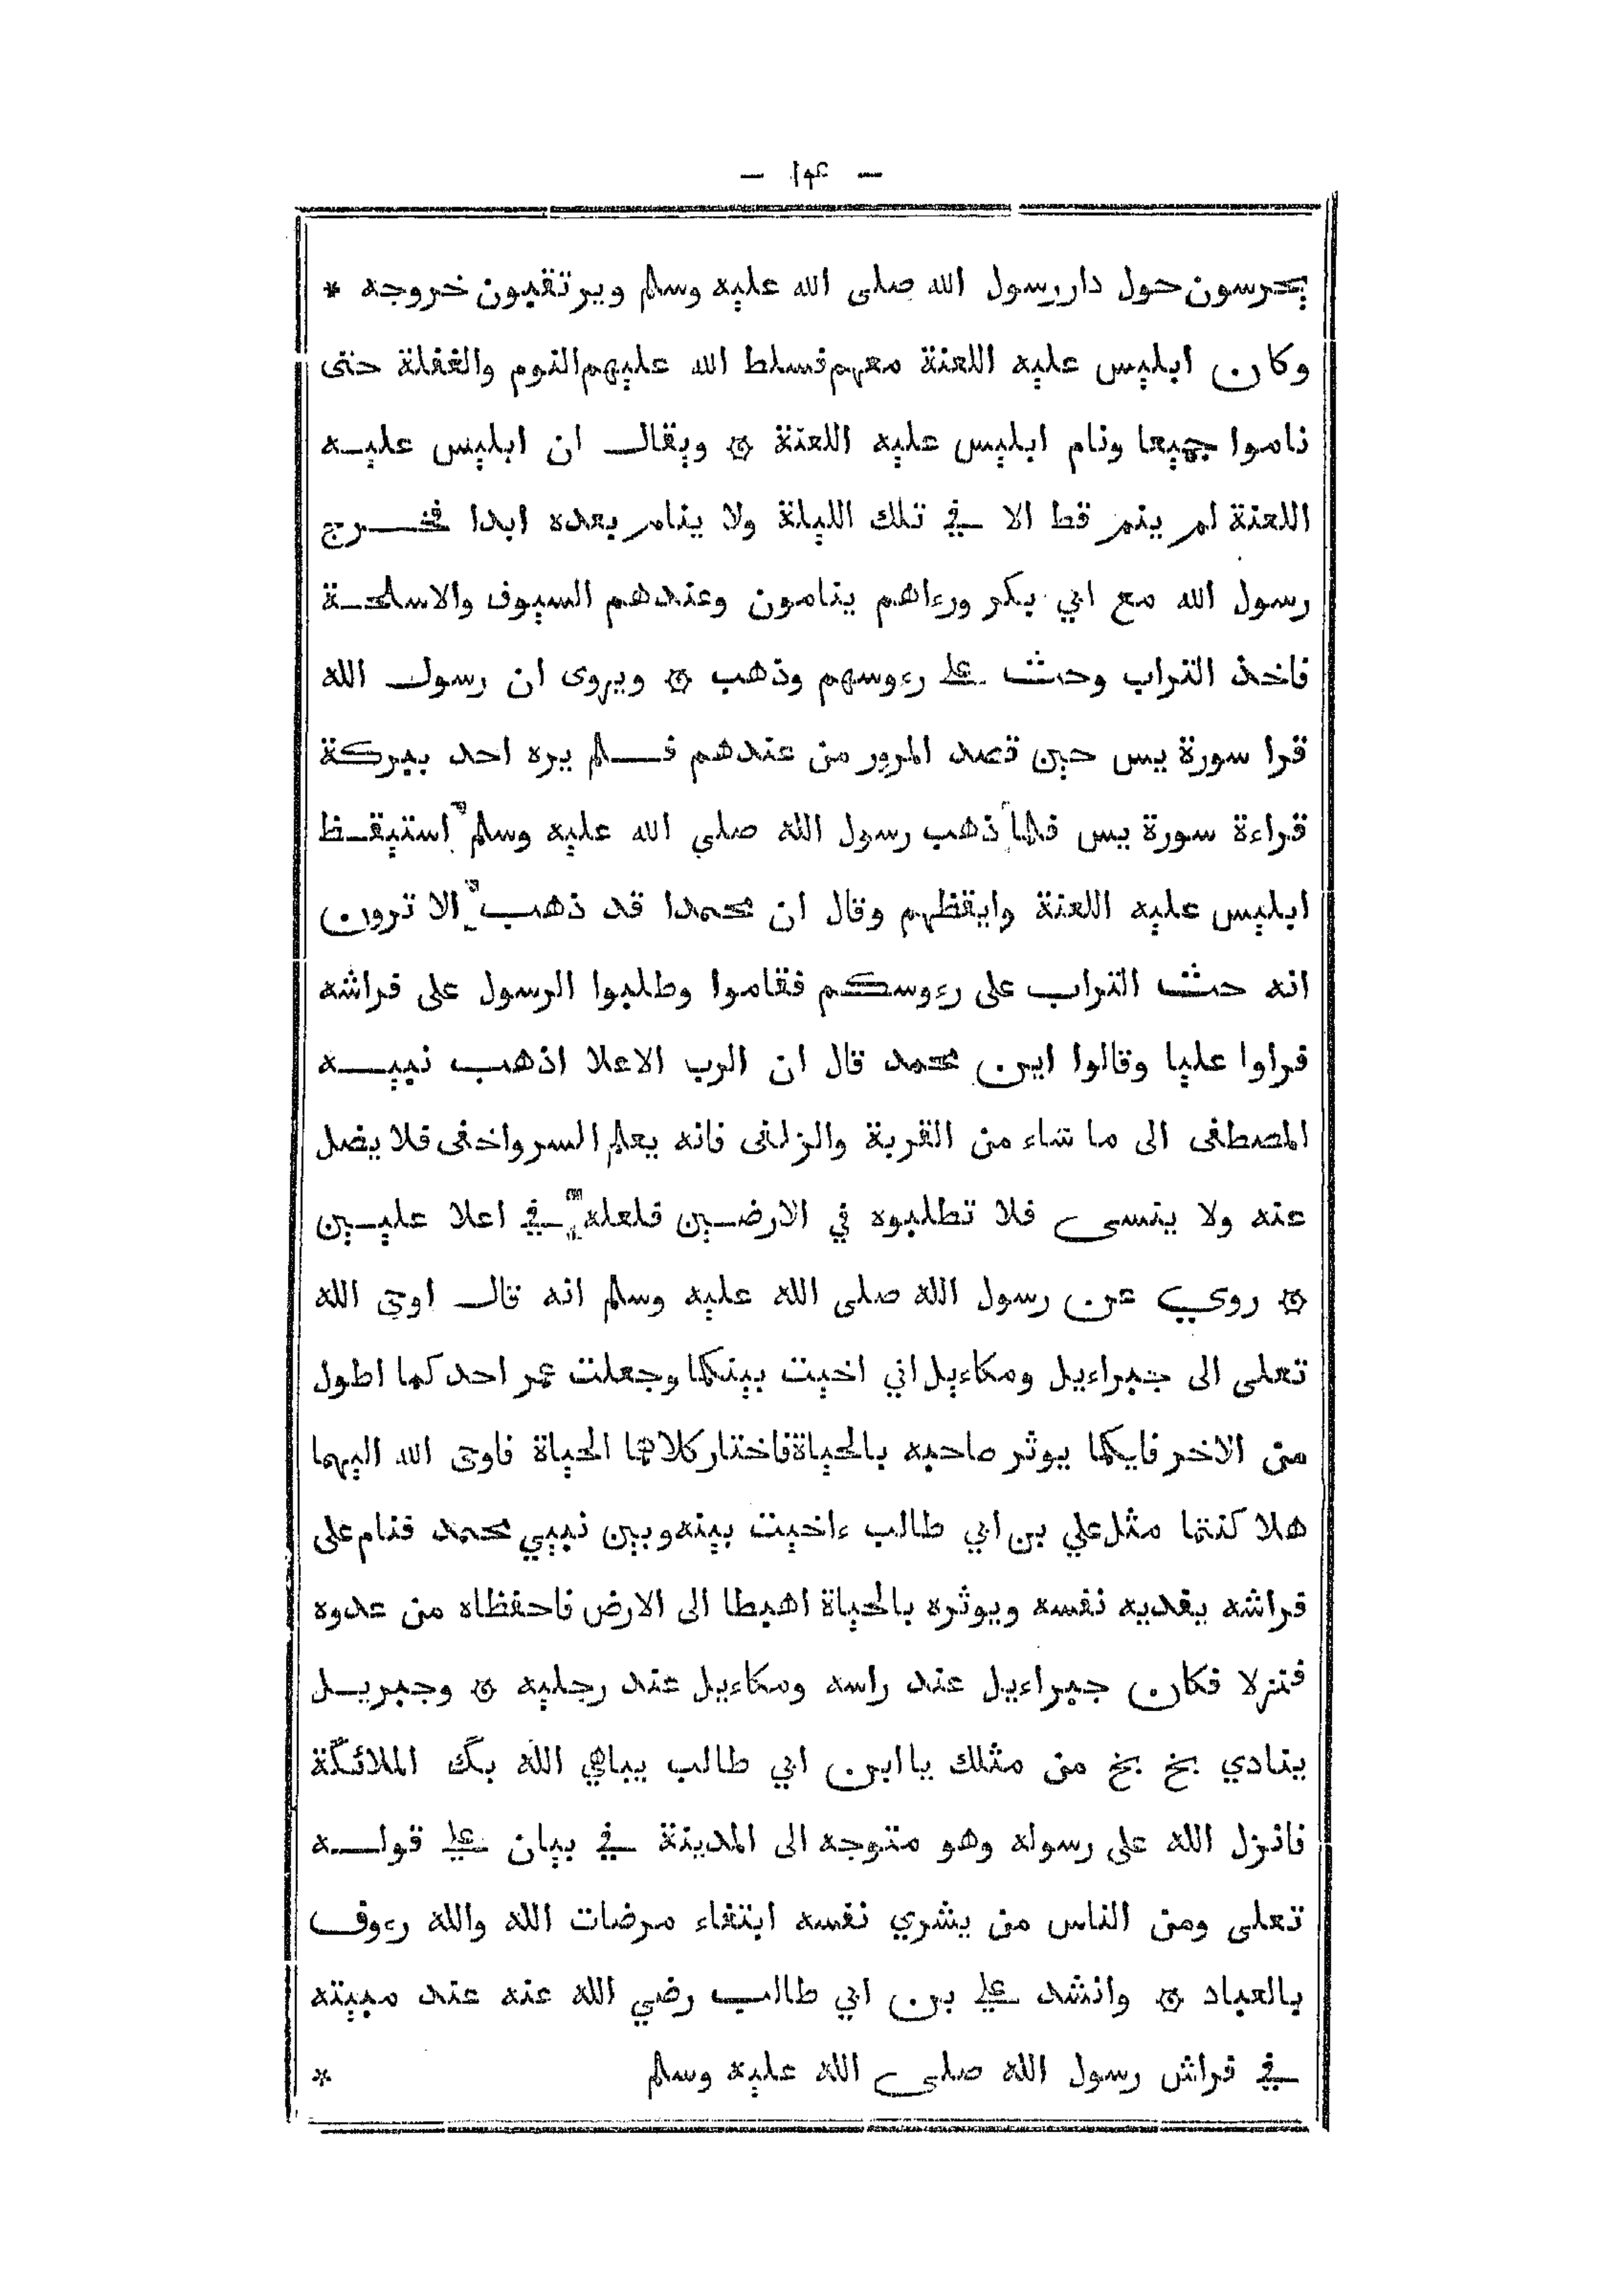 — ١٣٤ —
يحرسون حول دار رسول الله صلى الله عليه وسلم ويرتقبون خروجه *
وكان ابليس عليه اللعنة معهم فسلط الله عليهم النوم والغفلة حتى
ناموا جميعا ونام ابليس عليه اللعنة ۞ ويقال ان ابليس عليه
اللعنة لم ينم قط الا في تلك الليلة ولا ينام بعده ابدا فخرج
رسول الله مع ابي بكر ورءاهم ينامون وعندهم السيوف والاسلحة
فاخذ التراب وحث على رءوسهم وذهب ۞ ويروى ان رسول الله
قرا سورة يس حين قصد المرور من عندهم فلم يره احد ببركة
قراءة سورة يس فلما ذهب رسول الله صلي الله عليه وسلم استيقظ
ابليس عليه اللعنة وايقظهم وقال ان محمدا قد ذهب الا ترون
انه حث التراب على رءوسكم فقاموا وطلبوا الرسول على فراشه
فراوا عليا وقالوا اين محمد قال ان الرب الاعلا اذهب نبيه
المصطفى الى ما شاء من القربة والزلفى فانه يعلم السر واخفى فلا يضل
عنه ولا ينسى فلا تطلبوه في الارضين فلعله في اعلا عليين
۞ روي عن رسول الله صلى الله عليه وسلم انه قال اوحى الله
تعلى الى جبراءيل ومكاءيل اني اخيت بينكما وجعلت عمر احدكما اطول
من الاخر فايكما يوثر صاحبه بالحياة فاختار كلاهما الحياة فاوحى الله اليهما
هلا كنتما مثل علي بن ابي طالب ءاخيت بينه وبين نبيي محمد فنام على
فراشه يفديه نفسه ويوثره بالحياة اهبطا الى الارض فاحفظاه من عدوه
فنزلا فكان جبراءيل عند راسه ومكاءيل عند رجليه ۞ وجبريل
ينادي بخ بخ من مثلك يا ابن ابي طالب يباهي الله بك الملائكة
فانزل الله على رسوله وهو متوجه الى المدينة في بيان علي قوله
تعلى ومن الناس من يشري نفسه ابتغاء مرضات الله والله رءوف
بالعباد ۞ وانشد علي بن ابي طالب رضي الله عنه عند مبيته
في فراش رسول الله صلى الله عليه وسلم *